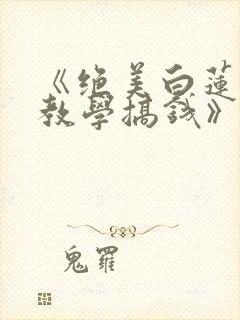 《绝美白莲
教學搞钱》
鬼罪